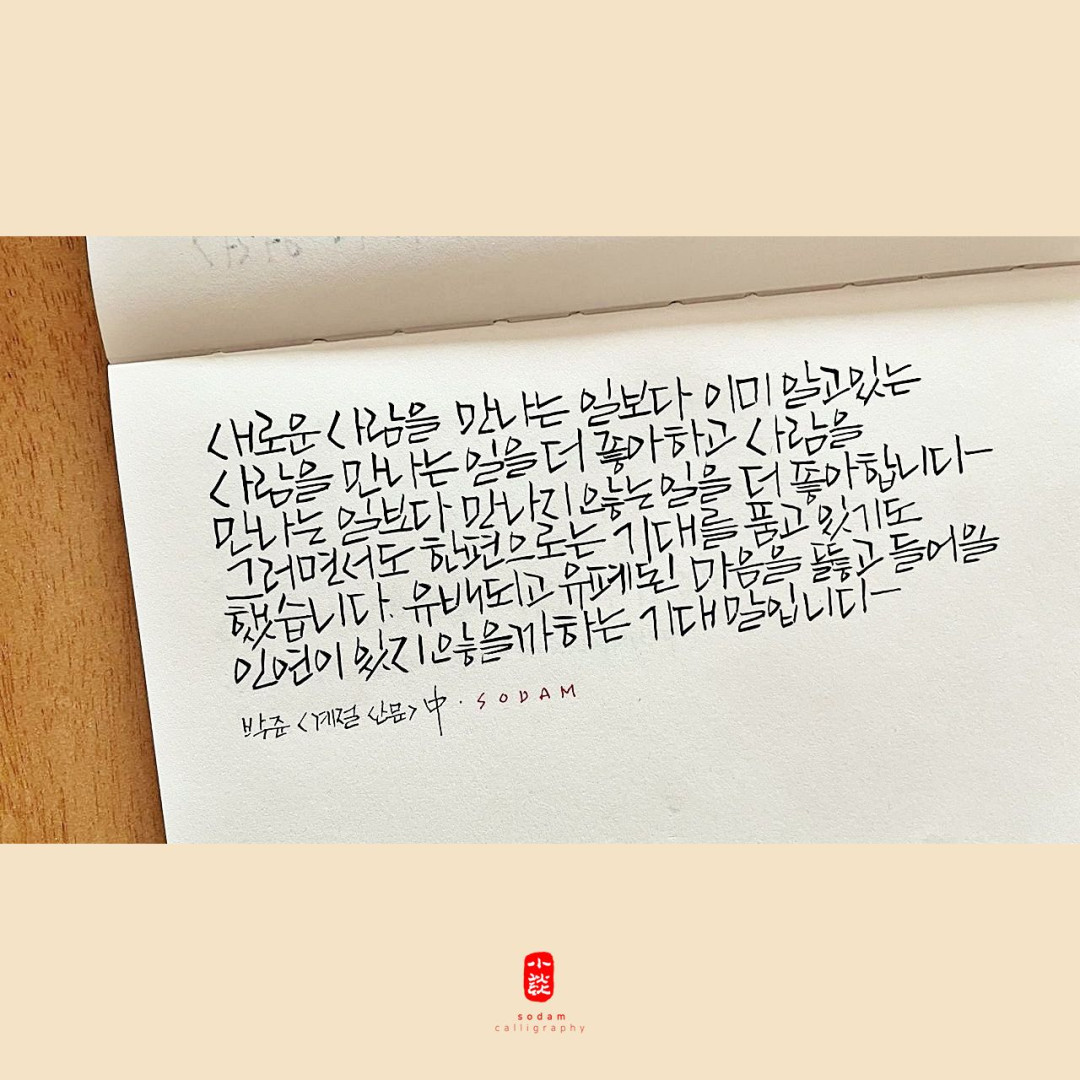 새로운 사람을 만나는 일보다 이미 알고있는
사람을 만나는 일을 더 좋아하고 사람을
만나는 일보다 만나지 않는 일을 더 좋아합니다-
그러면서도 한편으로는 기대를 품고 있기도
했습니다. 유배되고 유폐된 마음을 뚫고 들어올
인연이 있지 않을까 하는 기대 말입니다-
박준 <계절 산문> 中 · SODAM
小談
sodam
calligraphy